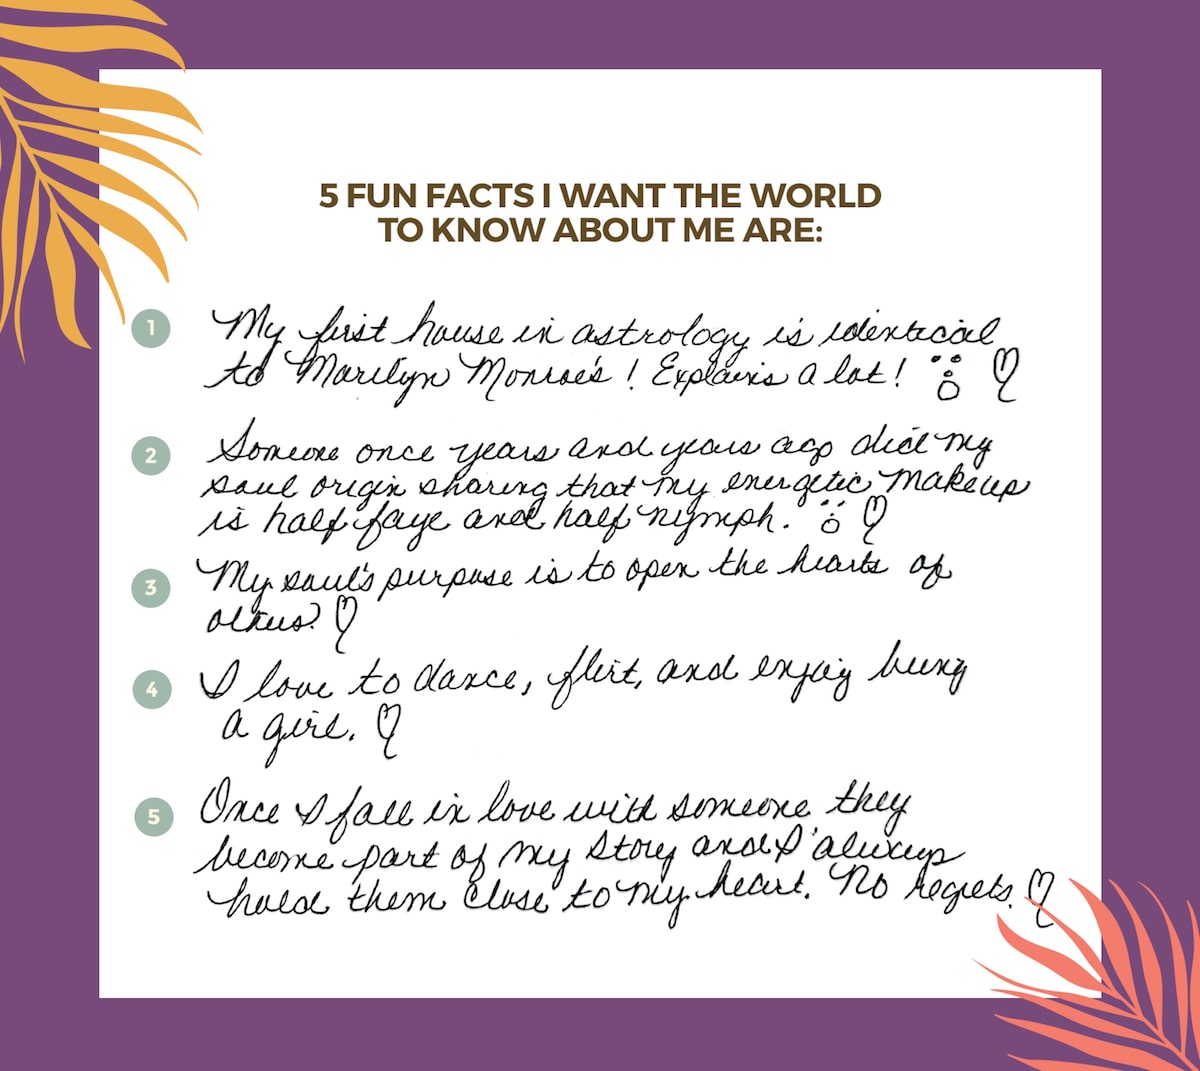 5 FUN FACTS I WANT THE WORLD
TO KNOW ABOUT ME ARE:
1 My first house in astrology is identical
to Marilyn Monroe's! Explains a lot!
2 Someone once years and years ago did my
soul origin sharing that my energetic makeup
is half faye and half nymph.
3 My soul's purpose is to open the hearts of
others.
4 I love to dance, flirt, and enjoy being
a girl.
5 Once I fall in love with someone they
become part of my story and I always
hold them close to my heart. No regrets.